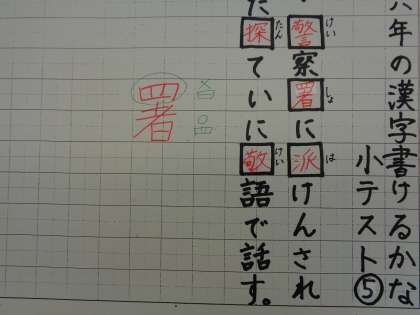 六年の漢字書けるかな
小テスト⑤
警察署に派けんされ
けい
しょ
は
た探ていに敬語で話す。
たん
けい
署